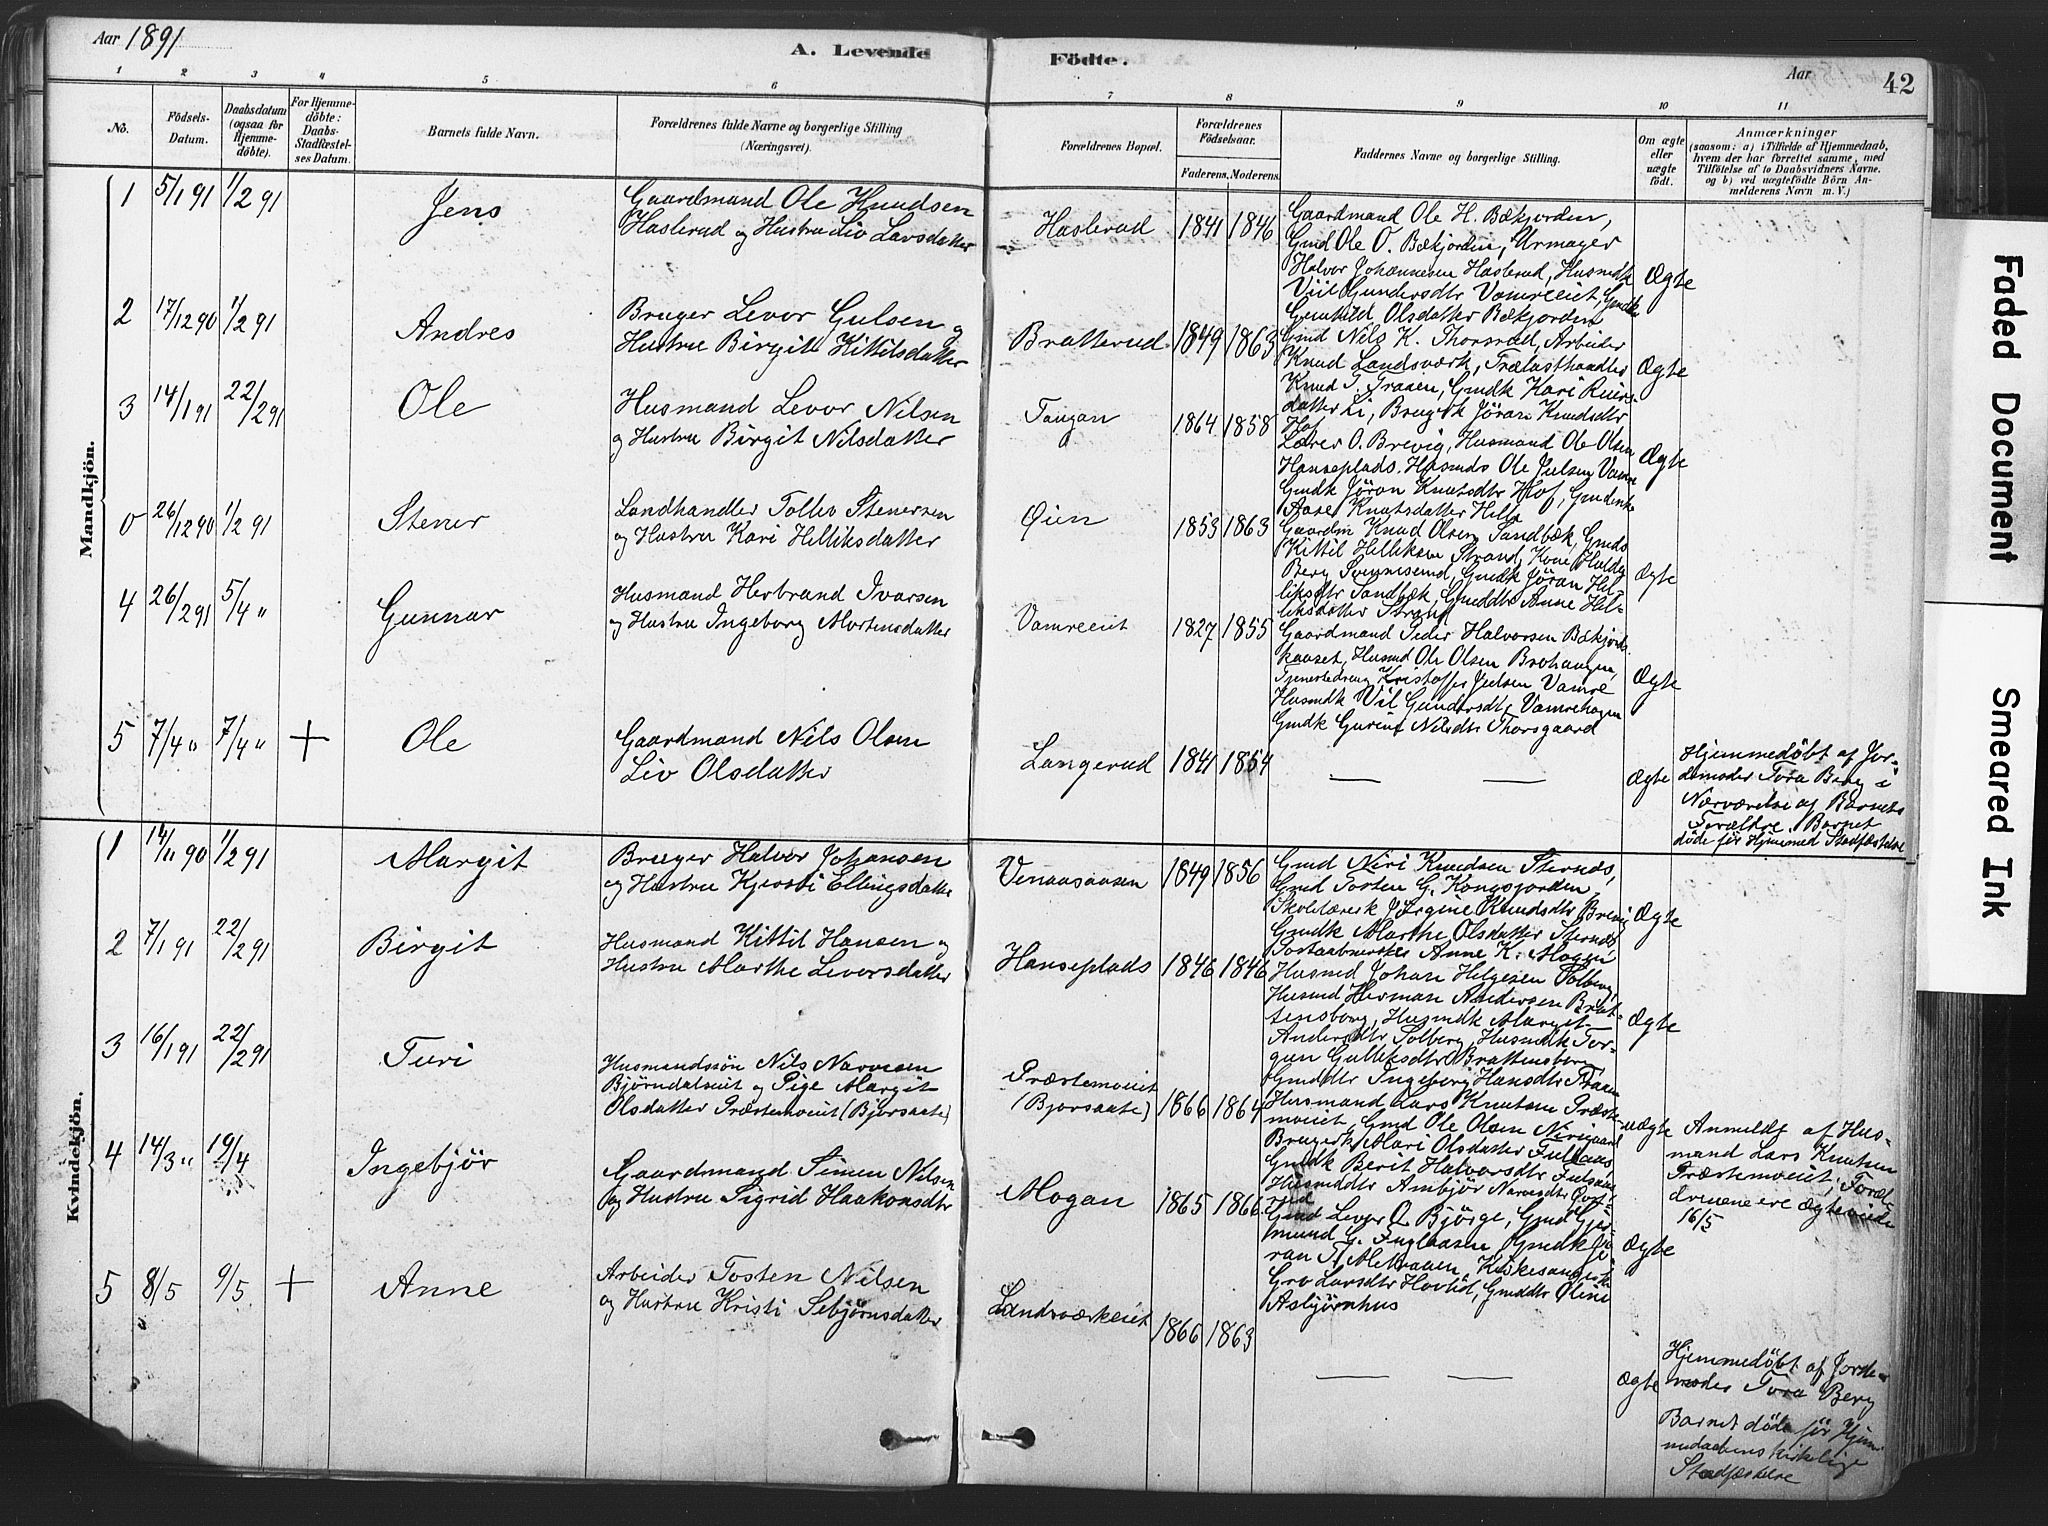 Aar 1891
A. Levende
Födte.
Aar
42
1 2 3 4 5 6 7 8 9 10 11
No.
Födsels-
Datum.
Daabsdatum
(ogsaa for
Hjemme-
döbte).
For Hjemme-
döbte:
Daabs-
Stadfæstel-
ses Datum.
Barnets fulde Navn.
Forældrenes fulde Navne og borgerlige Stilling
(Næringsvei).
Forældrenes Bopæl.
Forældrenes
Födselsaar.
Faderens. Moderens.
Faddernes Navne og borgerlige Stilling.
Om ægte
eller
uægte
födt.
Anmærkninger
(saasom: a) i Tilfælde af Hjemmedaab,
hvem der har forrettet samme, med
Tilföielse af to Daabsvidners Navne,
og b) ved uægtefödte Börn An-
melderens Navn m. V.)
Mandkjön.
1 5/1 91 1/2 91 Jens
Gaardmand Ole Knudsen
Haslerud og Hustru Liv Larsdatter
Haslerud 1841 1846
Gaardmand Ole H. Bækjorden,
Gmd Ole O. Bækjorden, Urmager
Halvor Johannesen Haslerud, Husmdk
Viil Gundersdtr Vamreeiet, Gmdk
Gunhild Olsdatter Bækjorden
Ægte
2 17/12 90 1/2 91 Andres
Bruger Levor Gulsen og
Hustru Birgit Kittilsdatter
Bratterud 1849 1863
Gmd Nils K. Thorsrud, Arbeider
Knud Landsværk, Trælasthandler
Knud G. Traaen, Gmdk Kari Reier-
datter Li, Brugerk Jöran Knudsdtr
Hof
Ægte
3 14/1 91 22/2 91 Ole
Husmand Levor Nilsen
og Hustru Birgit Nilsdatter
Tangan 1864 1858
Lærer O. Brevig, Husmand Ole Olsen
Hanseplads, Husmds Ole Juelsen Vamre
Gmdk Jöran Knutsdtr Hof, Gmdenke
Aase Knutsdatter
Ægte
0 26/12 90 1/2 91 Stener
Landhandler Tollev Stenersen
og Hustru Kari Helliksdatter
Öien 1853 1863
Gaardm Knud Olsen Sandbæk, Gmds
Kittil Helliksen Strand, Kone Hulda
Berg Svennesund, Gmdk Jöran Hel-
liksdtr Sandbæk, Gmddtr Anne Hel-
liksdatter Strand
Ægte
4 26/2 91 5/4 " Gunnar
Husmand Herbrand Ivarsen
og Hustru Ingeborg Mortensdatter
Vamreeiet 1827 1855
Gaardmand Peder Halvorsen Bækjord-
kaaset, Husmd Ole Olsen Brohaugen,
Tjenestedreng Kristoffer Juelsen Vamre
Husmdk Viil Gundersdtr Vamrehagen
Gmdk Guriut Nilsdtr Thorsgaard
Ægte
5 7/4 " 7/4 " + Ole
Gaardmand Nils Olsen
Liv Olsdatter
Langerud 1841 1854
— —
Ægte
Hjemmedöbt af Jor-
demoder Tora Berg i
Nærværelse af Barnets
Forældre. Barnet
döde för Hjemmed Stadfæstelse
Kvindekjön.
1 14/11 90 1/2 91 Margit
Bruger Halvor Johansen
og Hustru Kjersti Ellingsdatter
Venaasaasen 1849 1856
Gmd Niri Knudsen Sternes,
Gmd Tosten G. Kongsjorden
Skolelærerk Jörgine Knudsdtr Brevig
Gmdk Marthe Olsdatter Sternes
Postaabnerske Anne K. Mogen
Ægte
2 7/1 91 22/2 91 Birgit
Husmand Kittil Hansen og
Hustru Marthe Leversdatter
Hanseplads 1846 1846
Husmd Johan Helgesen Solberg,
Husmd Herman Andersen Brat-
tensborg, Husmdk Margit
Andersdtr Solberg, Husmdk Tor-
gun Gulliksdtr Brattensborg
Gmddtr Ingeborg Hansdtr Traaen
Ægte
3 16/1 91 22/2 91 Turi
Husmandssön Nils Narvesen
Bjørndalseiet og Pige Margit
Olsdatter Præstemoeiet (Bjorsaate)
Præstemoeiet
(Bjorsaate) 1866 1864
Husmand Lars Knutsen Præste-
moeiet, Gmd Ole Olsen Nirigaard
Brugerk Mari Olsdatter Fullaas,
Gmdk Berit Halvorsdtr Fulsaas
Husmddtr Ambjör Narvesdtr
uægte
Anmeldt af Hus-
mand Lars Knutsen
Præstemoeiet, Foræl-
drene ere ægteviede
16/5
4 14/3 " 19/4 Ingebjör
Gaardmand Simen Nilsen
og Hustru Sigrid Haakonsdtr
Mogan 1865 1866
Gmd Levor O. Bjørge, Gmd Gjer-
mund G. Fuglaasen, Gmdk Jö-
ran T. Metraaen, Kirkesangerk
Gro Larsdtr Hovlid, Gmddtr Oline
Asbjørnhus
Ægte
5 8/5 9/5 + Anne
Arbeider Tosten Nilsen
og Hustru Kristi Sebjörnsdatter
Landsværkeiet 1866 1863
— —
Ægte
Hjemmedöbt af Jorde-
moder Tora Berg
Barnet döde för Hjem-
medaabens kirkelige
Stadfæstelse
Faded Document
Smeared Ink